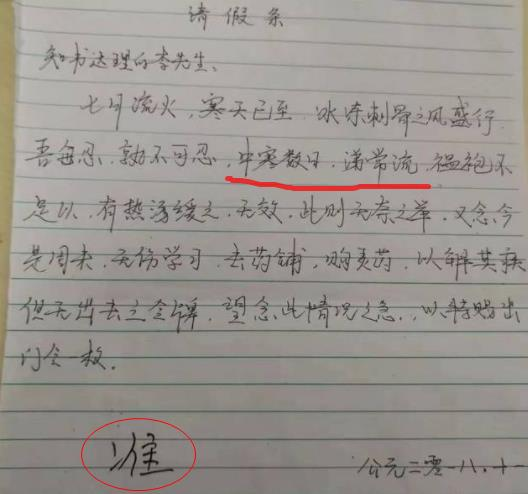 请假条
知书达理的李先生、
七月流火，寒天已至，冰冻刺骨之风盛行
吾每忍，孰不可忍，中寒数日，涕常流，缊袍不
足以，有热汤缓之，无效，此则无奈之举，又念今
是周末，无伤学习，去药铺，购买药，以解其疾
但无出去之令牌，望念此情况之急，以特赐出
门令一枚.
准
公元二零一八.十一